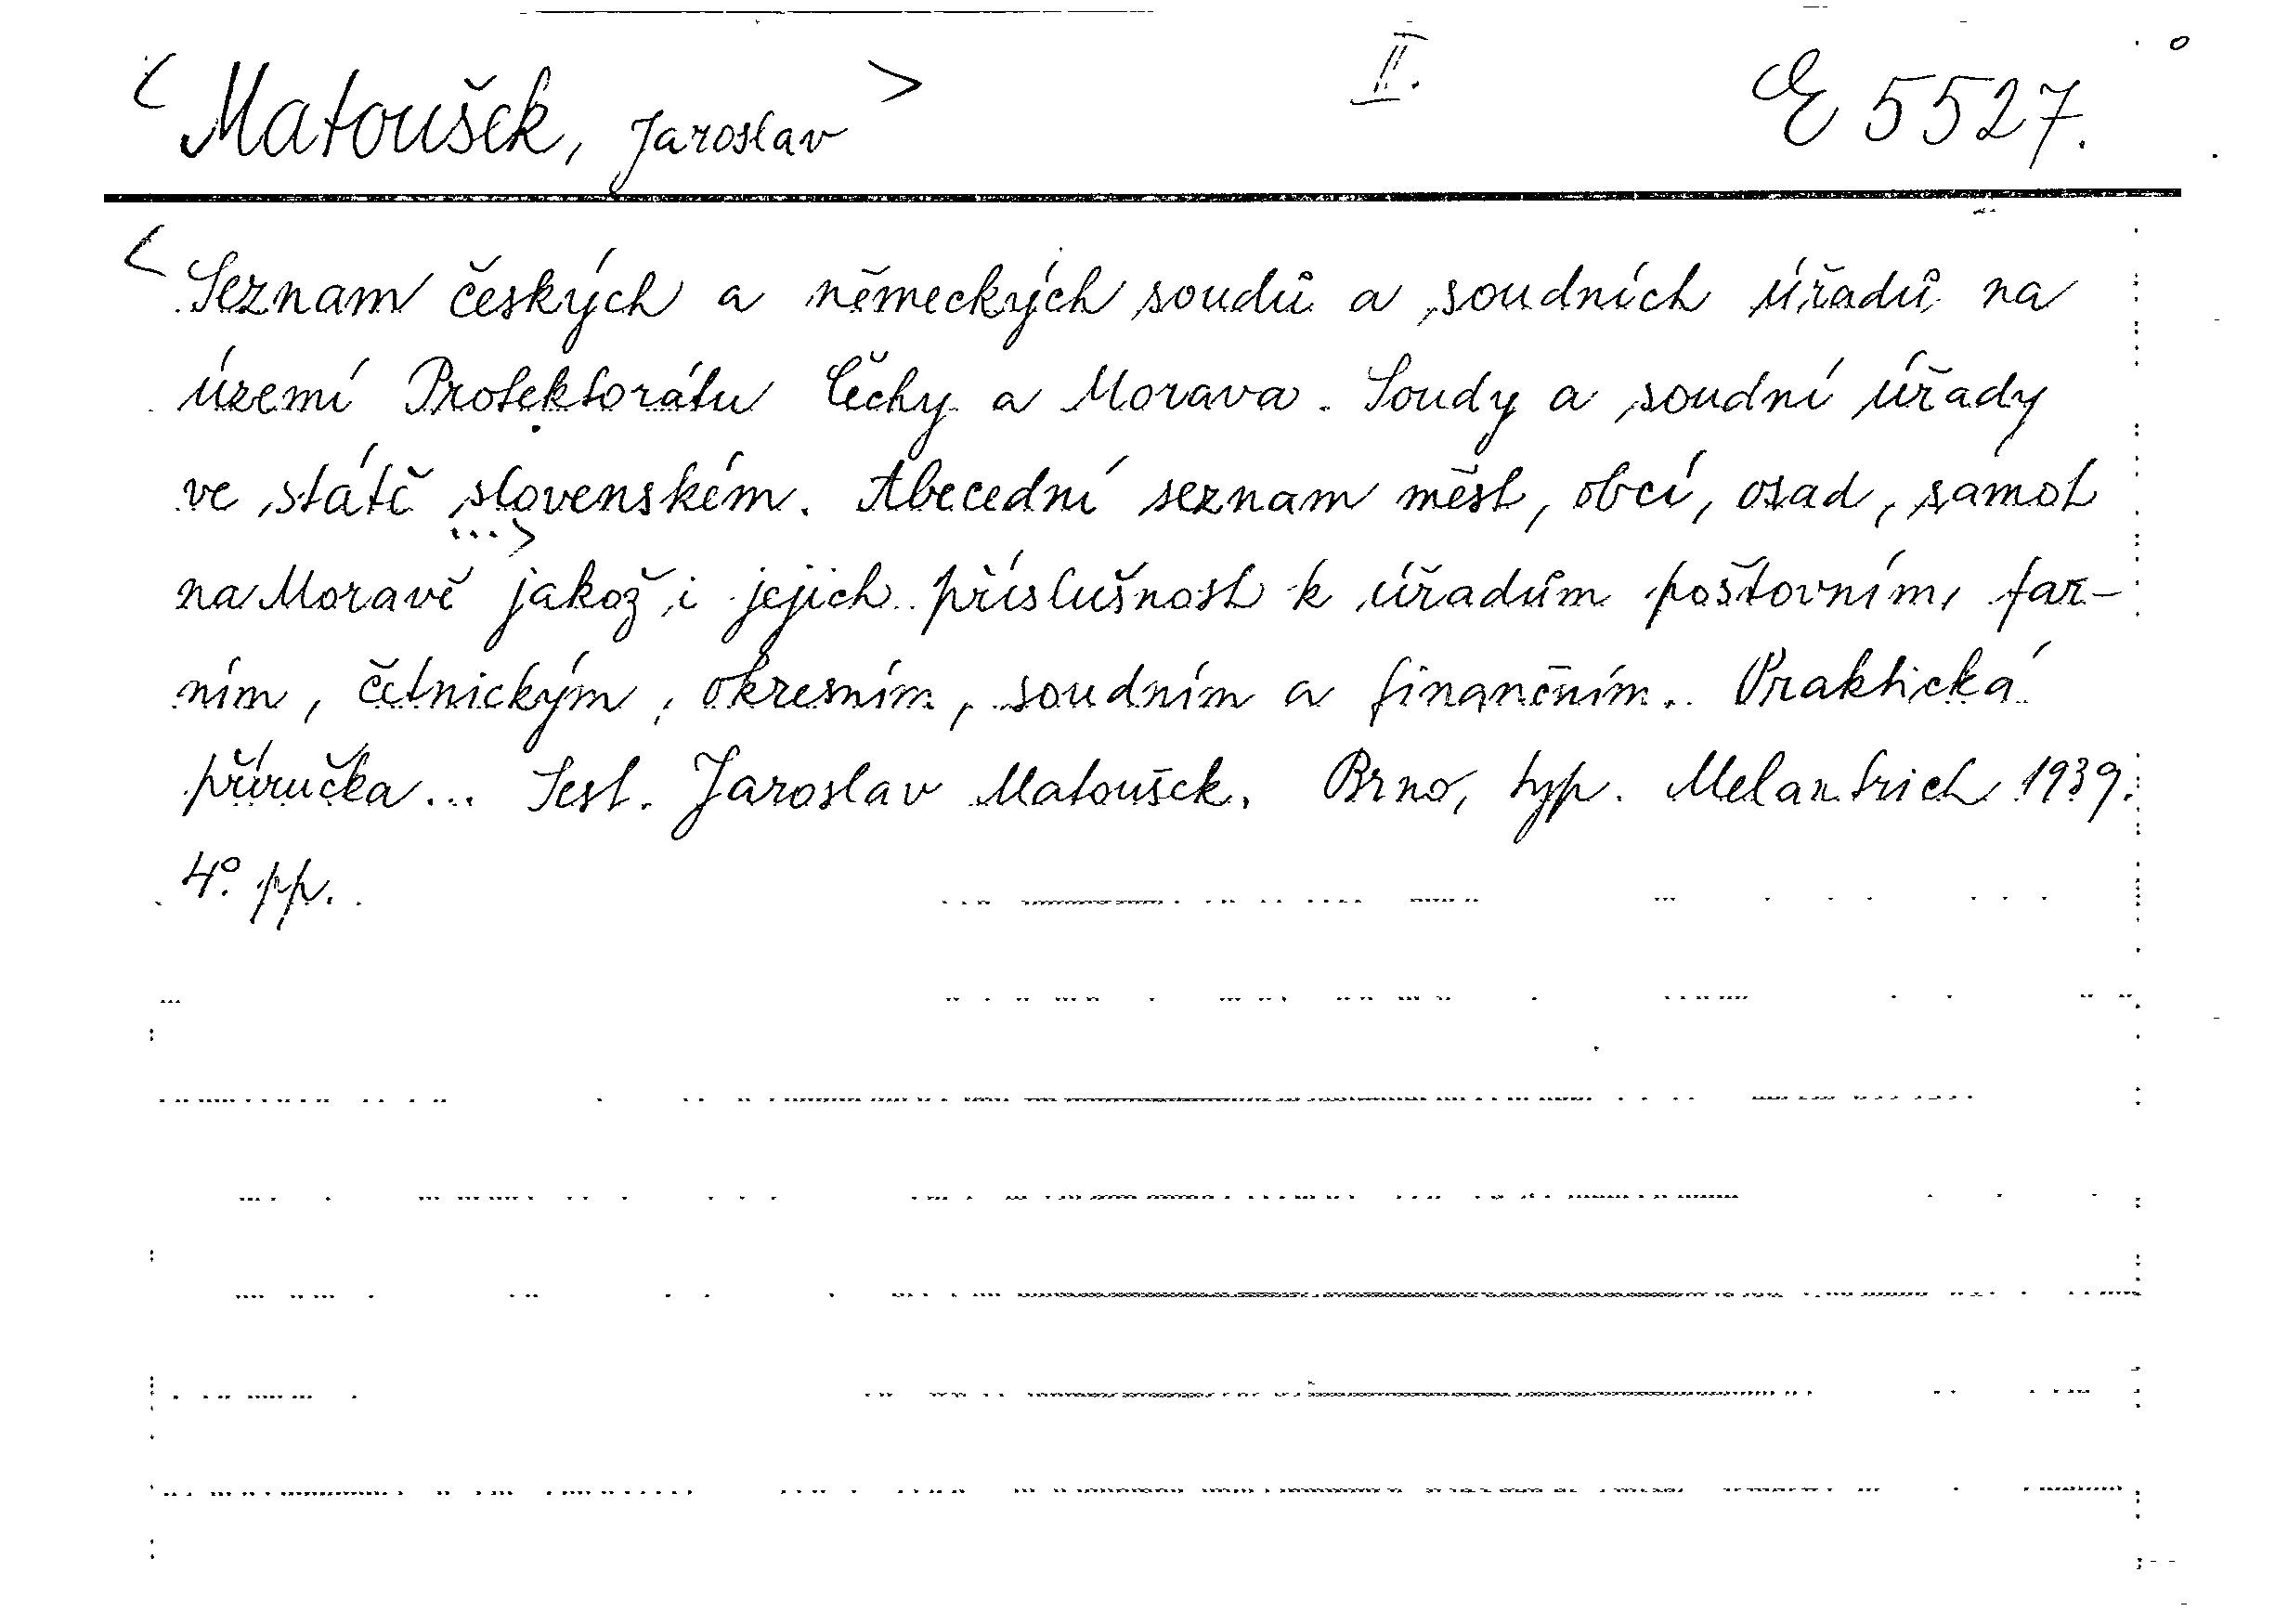 < Matoušek, Jaroslav > II. E 5527.
< Seznam českých a německých soudů a soudních úřadů na
území Protektorátu Čechy a Morava. Soudy a soudní úřady
ve státě slovenském. Abecední seznam měst, obcí, osad, samot
...>
na Moravě jakož i jejich příslušnost k úřadům poštovním, far-
ním, četnickým, okresním, soudním a finančním. Praktická
příručka... Sest. Jaroslav Matoušek. Brno, typ. Melantrich 1939.
4° pp.